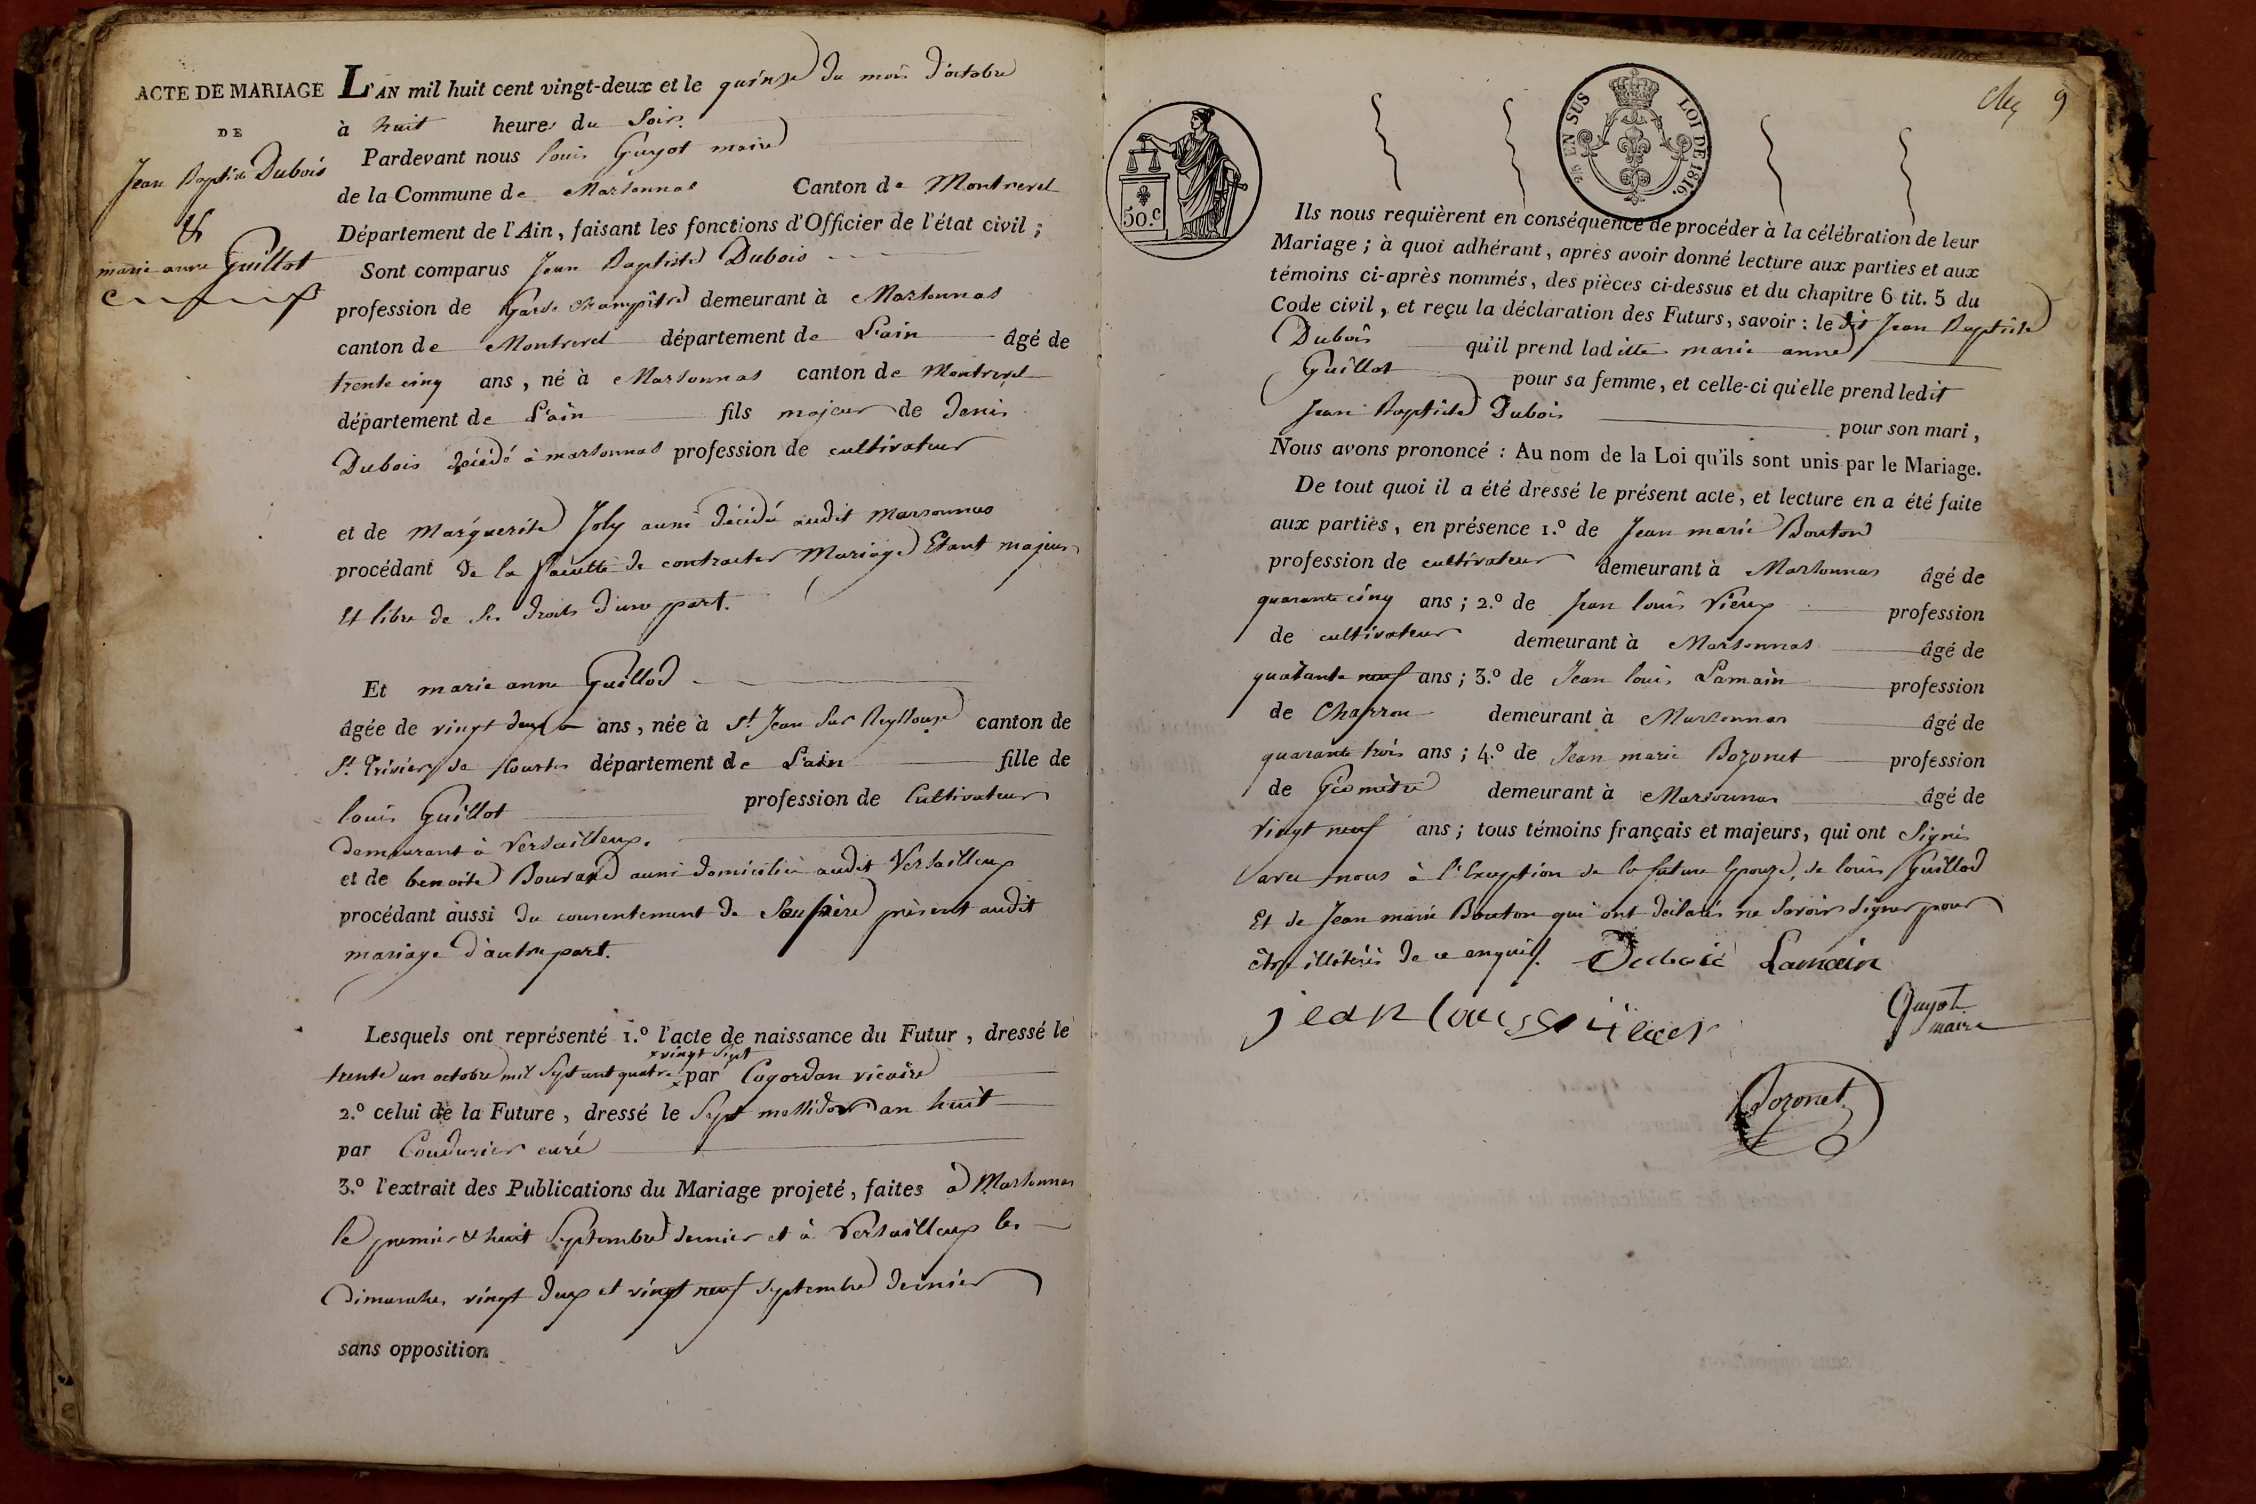 ACTE DE MARIAGE
DE
Jean Baptiste Dubois
&
marie anne Guillot
L'AN mil huit cent vingt-deux et le quinze du mois d'octobre
à huit heures du Soir.
Pardevant nous louis Guyot maire
de la Commune de Marsonnas Canton de Montrevel
Département de l'Ain, faisant les fonctions d'Officier de l'état civil ;
Sont comparus Jean Baptiste Dubois
profession de Garde Champêtre demeurant à Marsonnas
canton de Montrevel département de L'ain âgé de
trente cinq ans, né à Marsonnas canton de Montrevel
département de L'ain fils majeur de denis
Dubois décédé à marsonnas profession de cultivateur
et de Marguerite Joly aussi décédée audit Marsonnas
procédant de la faculté de contracter Mariage Etant majeur
Et libre de ses droits d'une part.
Et marie anne Guillod
âgée de vingt deux ans, née à St Jean Sur Reyssouze canton de
St Trivier de Courtes département de L'ain fille de
louis Guillot profession de Cultivateur
demeurant à Versailleux.
et de benoite Bouvard aussi domiciliée audit Versailleux
procédant aussi du consentement de Son père présent audit
mariage d'autre part.
Lesquels ont représenté 1.º l'acte de naissance du Futur, dressé le
x vingt Sept
trente un octobre mil Sept cent quatre x par Cogordan vicaire
2.º celui de la Future, dressé le Sept messidor an huit
par Coudurier curé
3.º l'extrait des Publications du Mariage projeté, faites à Marsonnas
le premier & huit Septembre dernier et à Versailleux les
Dimanches vingt deux et vingt neuf septembre dernier
sans opposition
50.c
25 EN SUS
LOI DE 1816.
9
Ils nous requièrent en conséquence de procéder à la célébration de leur
Mariage ; à quoi adhérant, après avoir donné lecture aux parties et aux
témoins ci-après nommés, des pièces ci-dessus et du chapitre 6 tit. 5 du
Code civil, et reçu la déclaration des Futurs, savoir : le dit Jean Baptiste
Dubois qu'il prend laditte marie anne
Guillot pour sa femme, et celle-ci qu'elle prend ledit
Jean Baptiste Dubois pour son mari,
Nous avons prononcé : Au nom de la Loi qu'ils sont unis par le Mariage.
De tout quoi il a été dressé le présent acte, et lecture en a été faite
aux parties, en présence 1.º de Jean marie Bouton
profession de cultivateur demeurant à Marsonnas âgé de
quarante cinq ans ; 2.º de Jean louis Vieux profession
de cultivateur demeurant à Marsonnas âgé de
quarante neuf ans ; 3.º de Jean louis Lamain profession
de Charron demeurant à Marsonnas âgé de
quarante trois ans ; 4.º de Jean marie Bozonet profession
de Géomètre demeurant à Marsonnas âgé de
vingt neuf ans ; tous témoins français et majeurs, qui ont Signés
avec nous à l'Exception de la future Epouze, de louis Guillod
Et de Jean marie Bouton qui ont déclarés ne Savoir Signer pour
être illitérés de ce enquis. Dubois Lamain
jean louis Guyot
maire
Bozonet